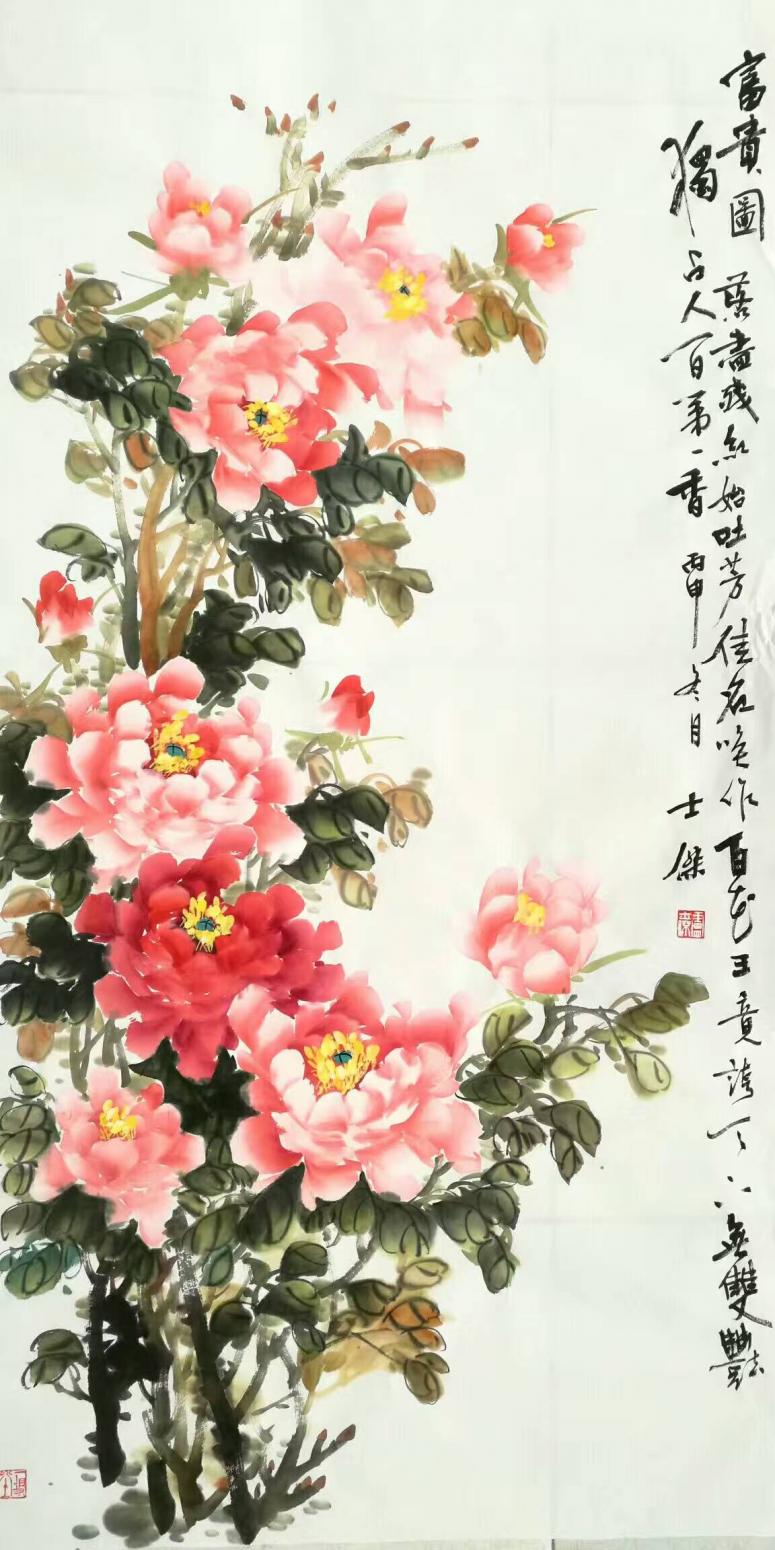 富貴圖 落盡殘紅始吐芳佳名喚作百花王竟誇天下無雙艷
獨占人間第一香 丙申冬月 士傑